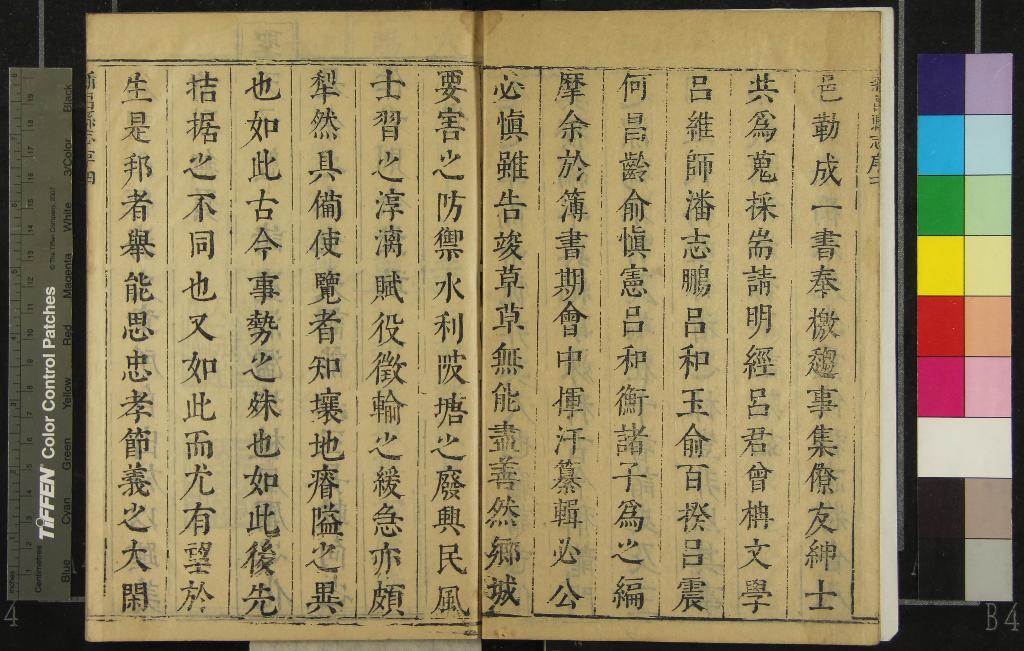 邑勒成一書奉檄趨事集僚友紳士
共為蒐採耑請明經呂君曾柟文學
呂維師潘志鵬呂和玉俞百揆呂震
何昌齡俞慎憲呂和衡諸子為之編
摩余於簿書期會中揮汗纂輯必公
必慎雖告竣草草無能盡善然鄉城
要害之防禦水利陂塘之廢興民風
士習之淳漓賦役徵輸之緩急亦頗
犁然具備使覽者知壤地瘠隘之異
也如此古今事勢之殊也如此後先
拮据之不同也又如此而尤有望於
生是邦者舉能思忠孝節義之大閑
新昌縣志序四
TIFFEN Color Control Patches
© The Tiffen Company, 2007
Blue Cyan Green Yellow Red Magenta White 3/Color Black
Centimetres
Inches
4
B4